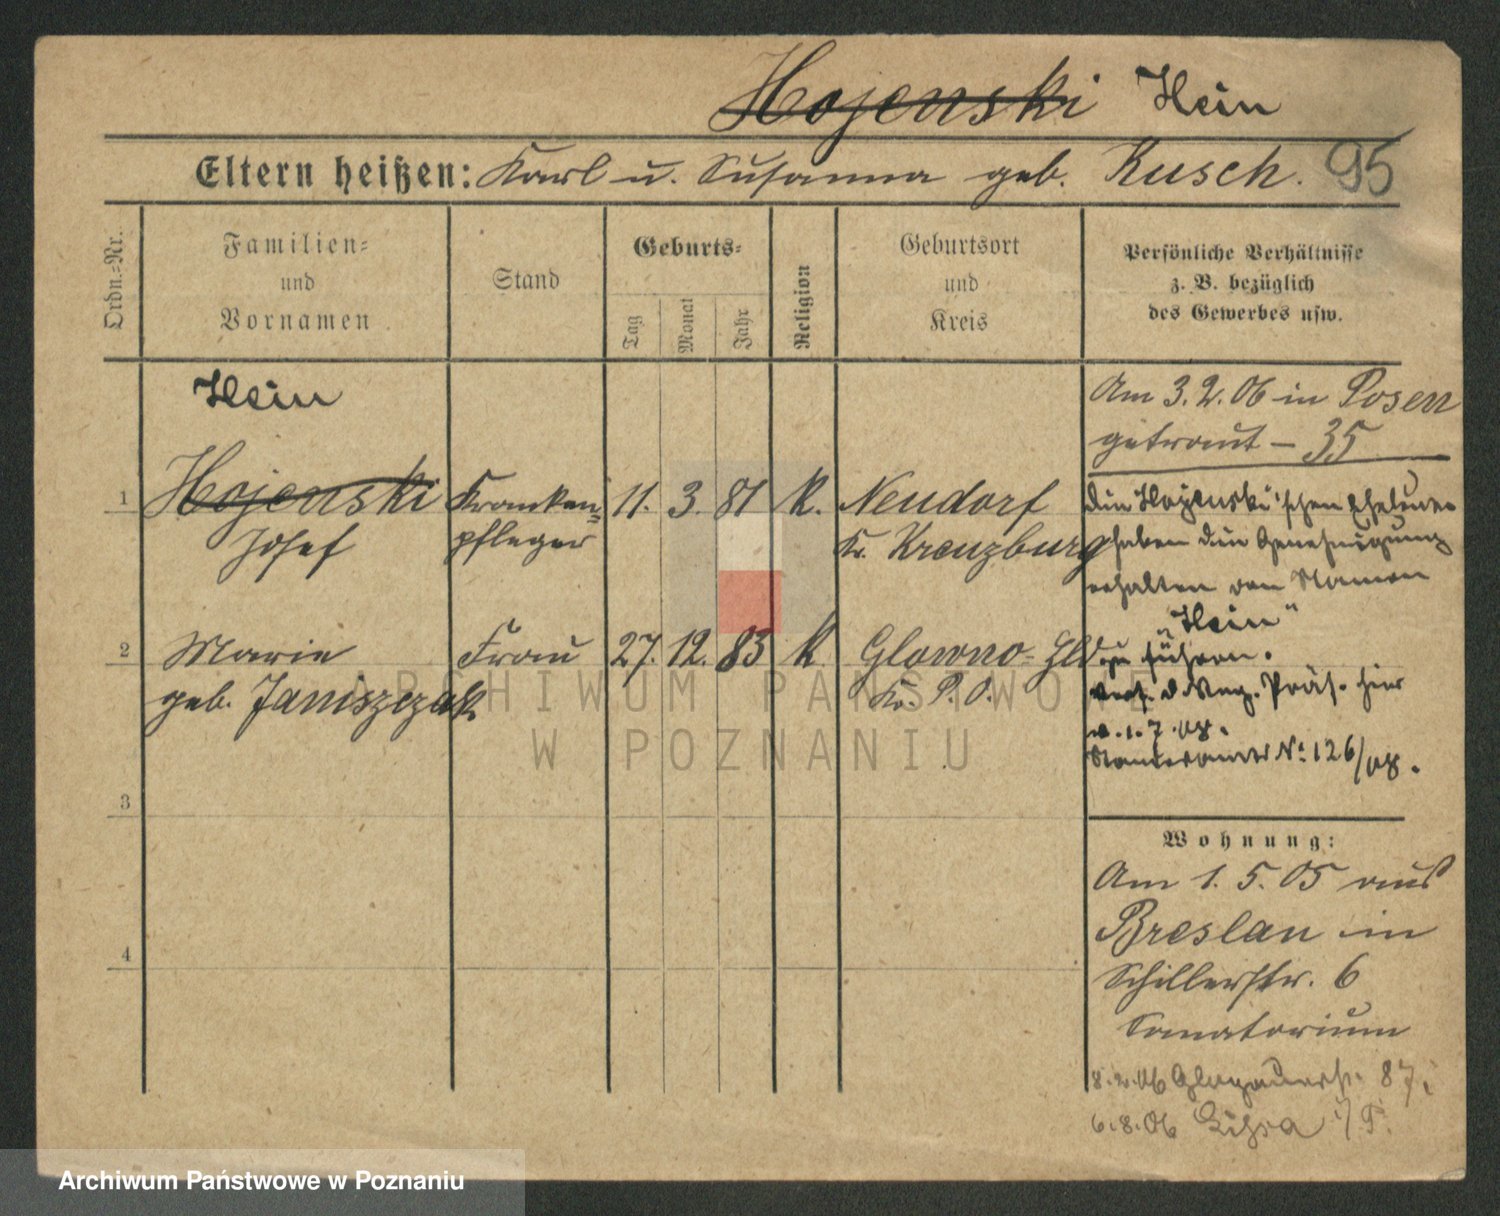 Hojenski Hein
Eltern heißen: Karl u. Susanna geb. Kusch. 95
Ordn.-Nr.
Familien-
und
Vornamen
Stand
Geburts-
Tag
Monat
Jahr
Religion
Geburtsort
und
Kreis
Persönliche Verhältnisse
z. B. bezüglich
des Gewerbes usw.
Hein
1 Hojenski Kranken- 11. 3. 81 K. Neudorf
Josef pfleger Kr. Kreuzburg
2 Marie Frau 27. 12. 83 K Glowno
geb. Janiszczak Kr. P. O.
3
4
Am 3.2.06 in Posen
getraut – 35
Die Hojenski'schen Eheleute
haben die Genehmigung
erhalten den Namen
"Hein"
zu führen.
Verf. d. Reg. Präs. hier
v. 1. 7. 08.
Standesamt No 126/08.
Wohnung:
Am 1. 5. 05 aus
Breslau in
Schillerstr. 6
Sanatorium
8.2.06 Glogauerstr. 87
6.8.06
ARCHIWUM PAŃSTWOWE
W POZNANIU
Archiwum Państwowe w Poznaniu